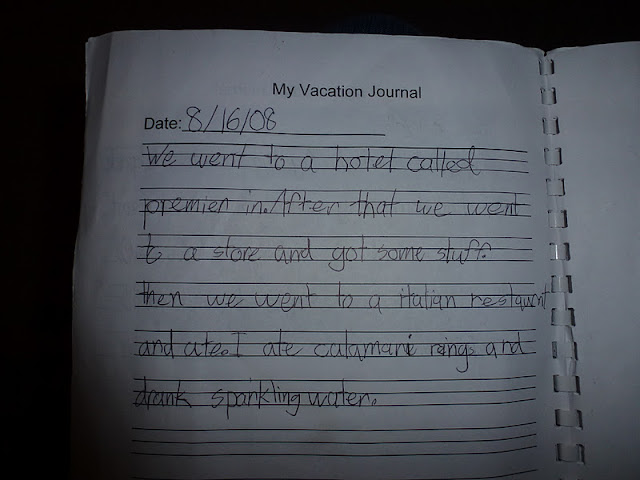 My Vacation Journal
Date: 8/16/08
We went to a hotel called
premier in. After that we went
to a store and got some stuff.
then we went to a italian restaurnt
and ate. I ate calamari rings and
drank sparkling water.